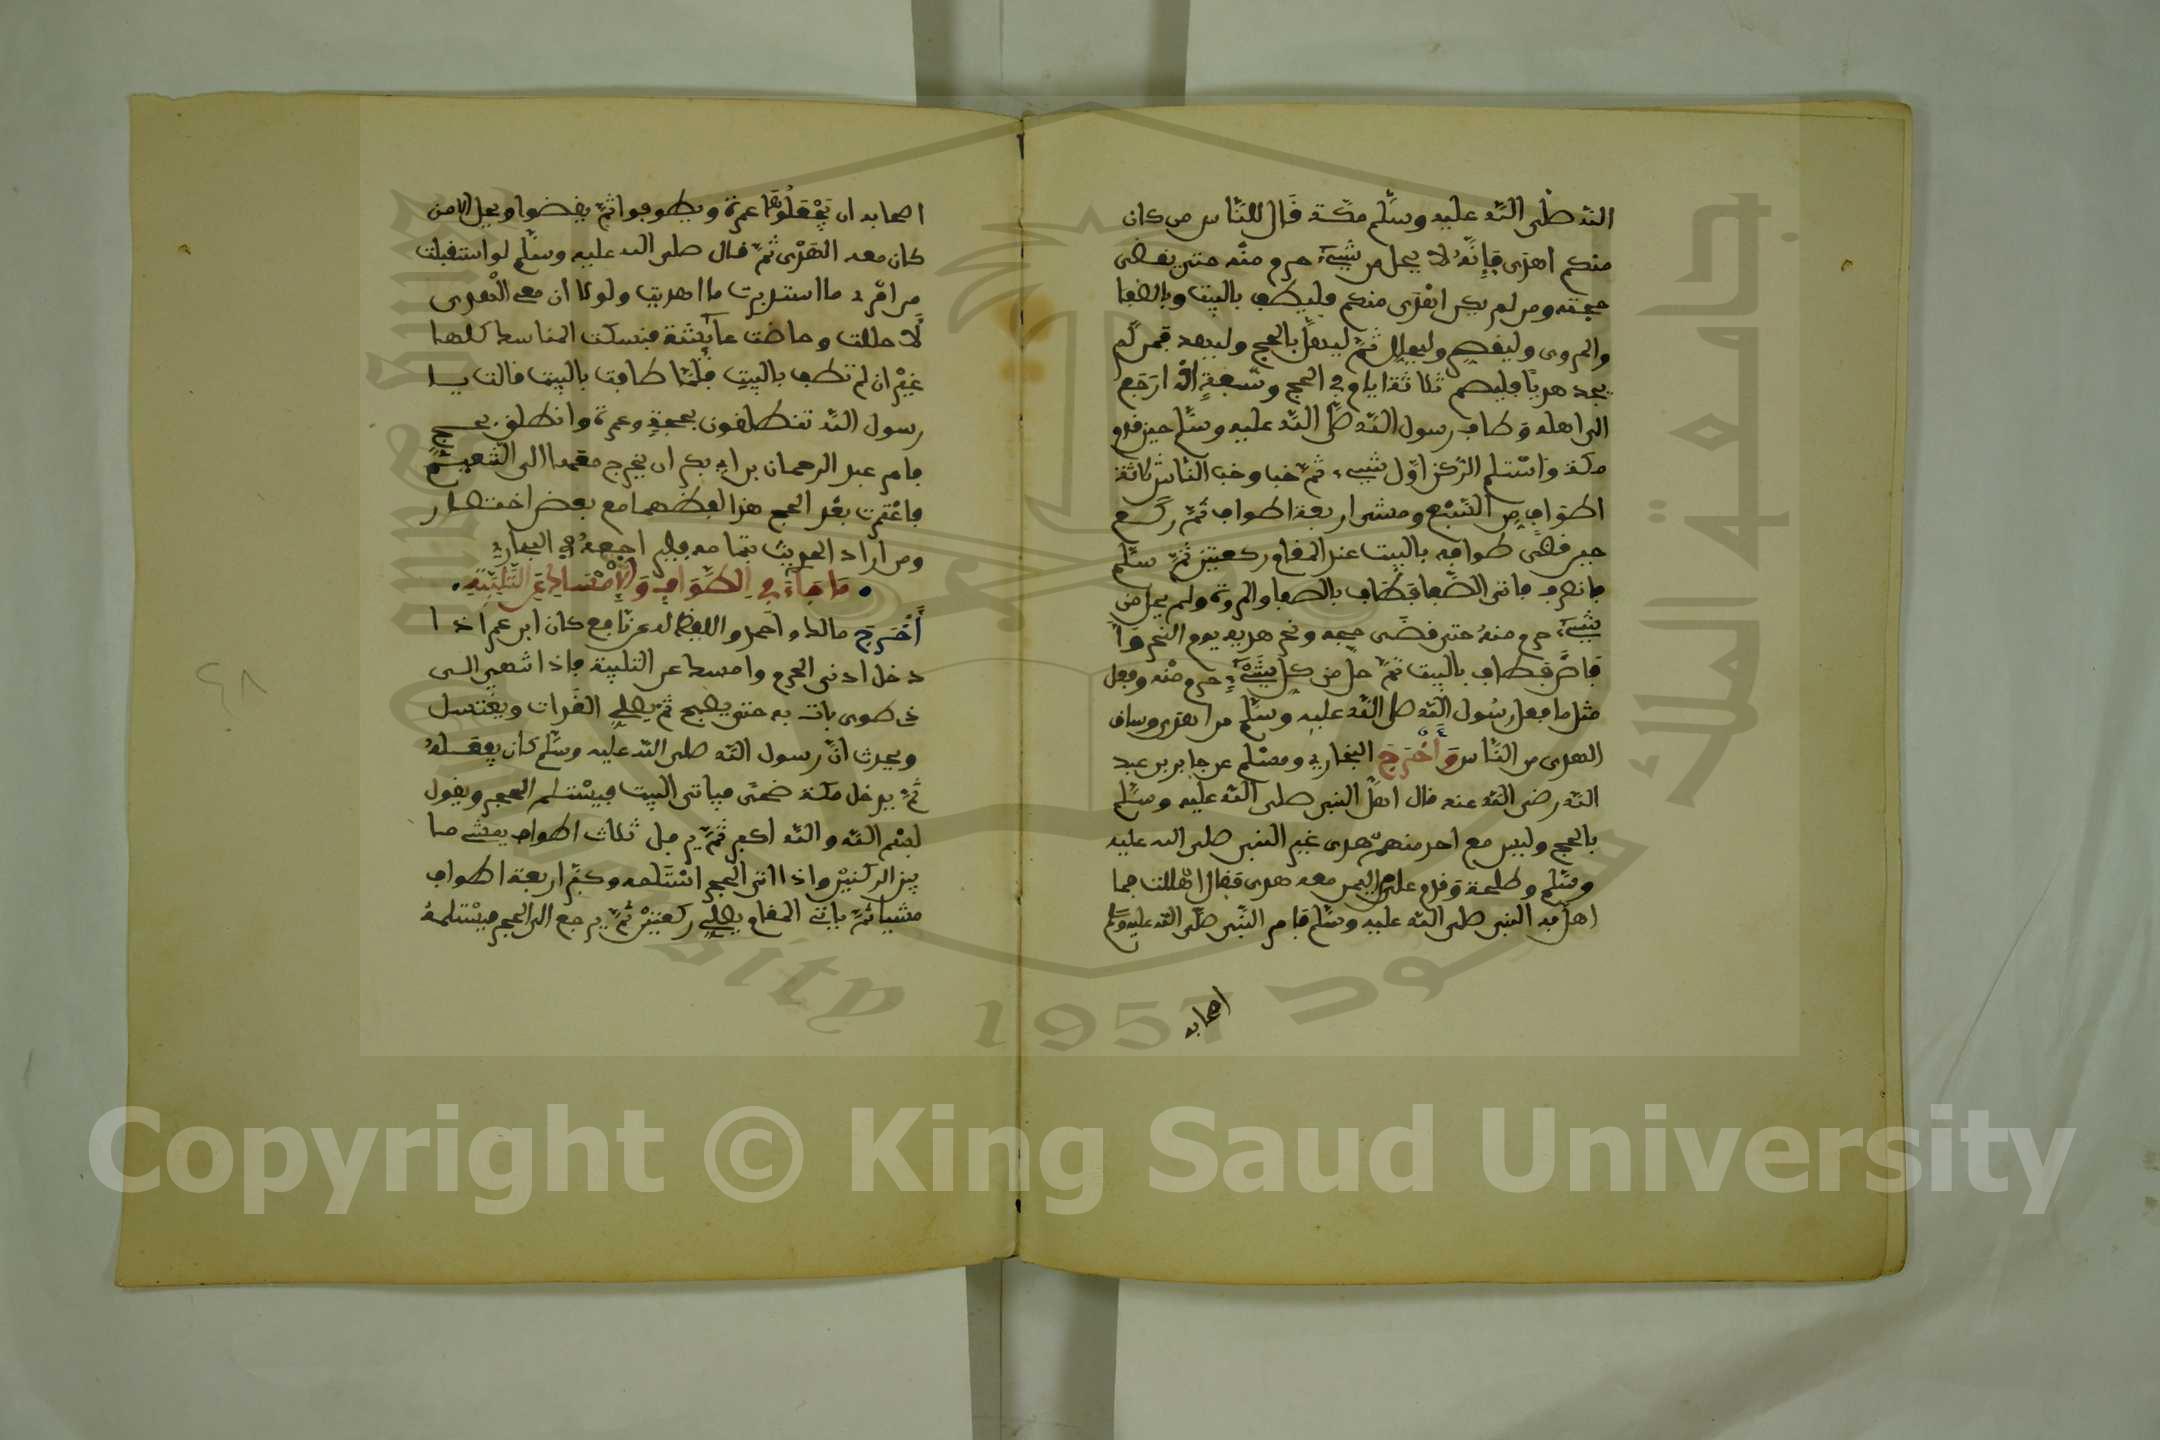 الله صلى الله عليه وسلم مكة قال للناس من كان
منكم اهدى فإنه لا يحل من شيء حرم منه حتى يقضي
حجته ومن لم يكن اهدى منكم فليطف بالبيت وبالصفا
والمروى وليقصر وليحلل ثم ليهل بالحج وليهد فمن لم
يجد هديا فليصم ثلاثة ايام في الحج وسبعة اذا رجع
الى اهله وطاف رسول الله صلى الله عليه وسلم حين قدم
مكة واستلم الركن اول شيء ثم خب وخب الناس ثلاثة
اطواف من السبع ومشى اربعة اطواف ثم ركع
حين قضى طوافه بالبيت عند المقام ركعتين ثم سلم
فانصرف فاتى الصفا فطاف بالصفا والمروة ولم يحل من
شيء حرم منه حتى قضى حجه ونحر هديه يوم النحر وا
فاض فطاف بالبيت ثم حل من كل شيء حرم منه وفعل
مثل ما فعل رسول الله صلى الله عليه وسلم من اهدى وساق
الهدى من الناس وأخرج البخاري ومسلم عن جابر بن عبد
الله رضي الله عنه قال اهل النبي صلى الله عليه وسلم
بالحج وليس مع احد منهم هدى غير النبي صلى الله عليه
وسلم وطلحة وقدم علي من اليمن معه هدى فقال اهللت بما
اهل به النبي صلى الله عليه وسلم فامر النبي صلى الله عليه وسلم
اصحابه
اصحابه ان يجعلوها عمرة ويطوفوا ثم يقضوا ويحل الا من
كان معه الهدى ثم قال صلى الله عليه وسلم لو استقبلت
من امري ما استدبرت ما اهديت ولولا ان معي الهدى
لاحللت وحاضت عائشة فنسكت المناسك كلها
غير ان لم تطف بالبيت فلما طافت بالبيت قالت يا
رسول الله تنطلقون بحجة وعمرة وانطلق بحج
فامر عبد الرحمان بن ابي بكر ان يخرج معها الى التنعيم
فاعتمرت بعد الحج هذا لفظهما مع بعض اختصار
ومن اراد الحديث بتمامه فليراجعه في البخاري
ما جاء في الطواف والامساك عن التلبية
أخرج مالك واحمد واللفظ له عن نافع كان ابن عمر اذا
دخل ادنى الحرم وامسك عن التلبية فاذا انتهى الى
ذي طوى بات به حتى يصبح ثم يصلي الغداة ويغتسل
ويحدث ان رسول الله صلى الله عليه وسلم كان يفعله
ثم يدخل مكة ضحى فياتى البيت فيستلم الحجر ويقول
بسم الله والله اكبر ثم يرمل ثلاث اطواف يمشي ما
بين الركنين واذا اتى الحجر استلمه وكبر اربعة اطواف
مشيا ثم ياتي المقام يصلي ركعتين ثم يرجع الى الحجر فيستلمه
٤٨
جامعة الملك سعود
1957
Copyright © King Saud University